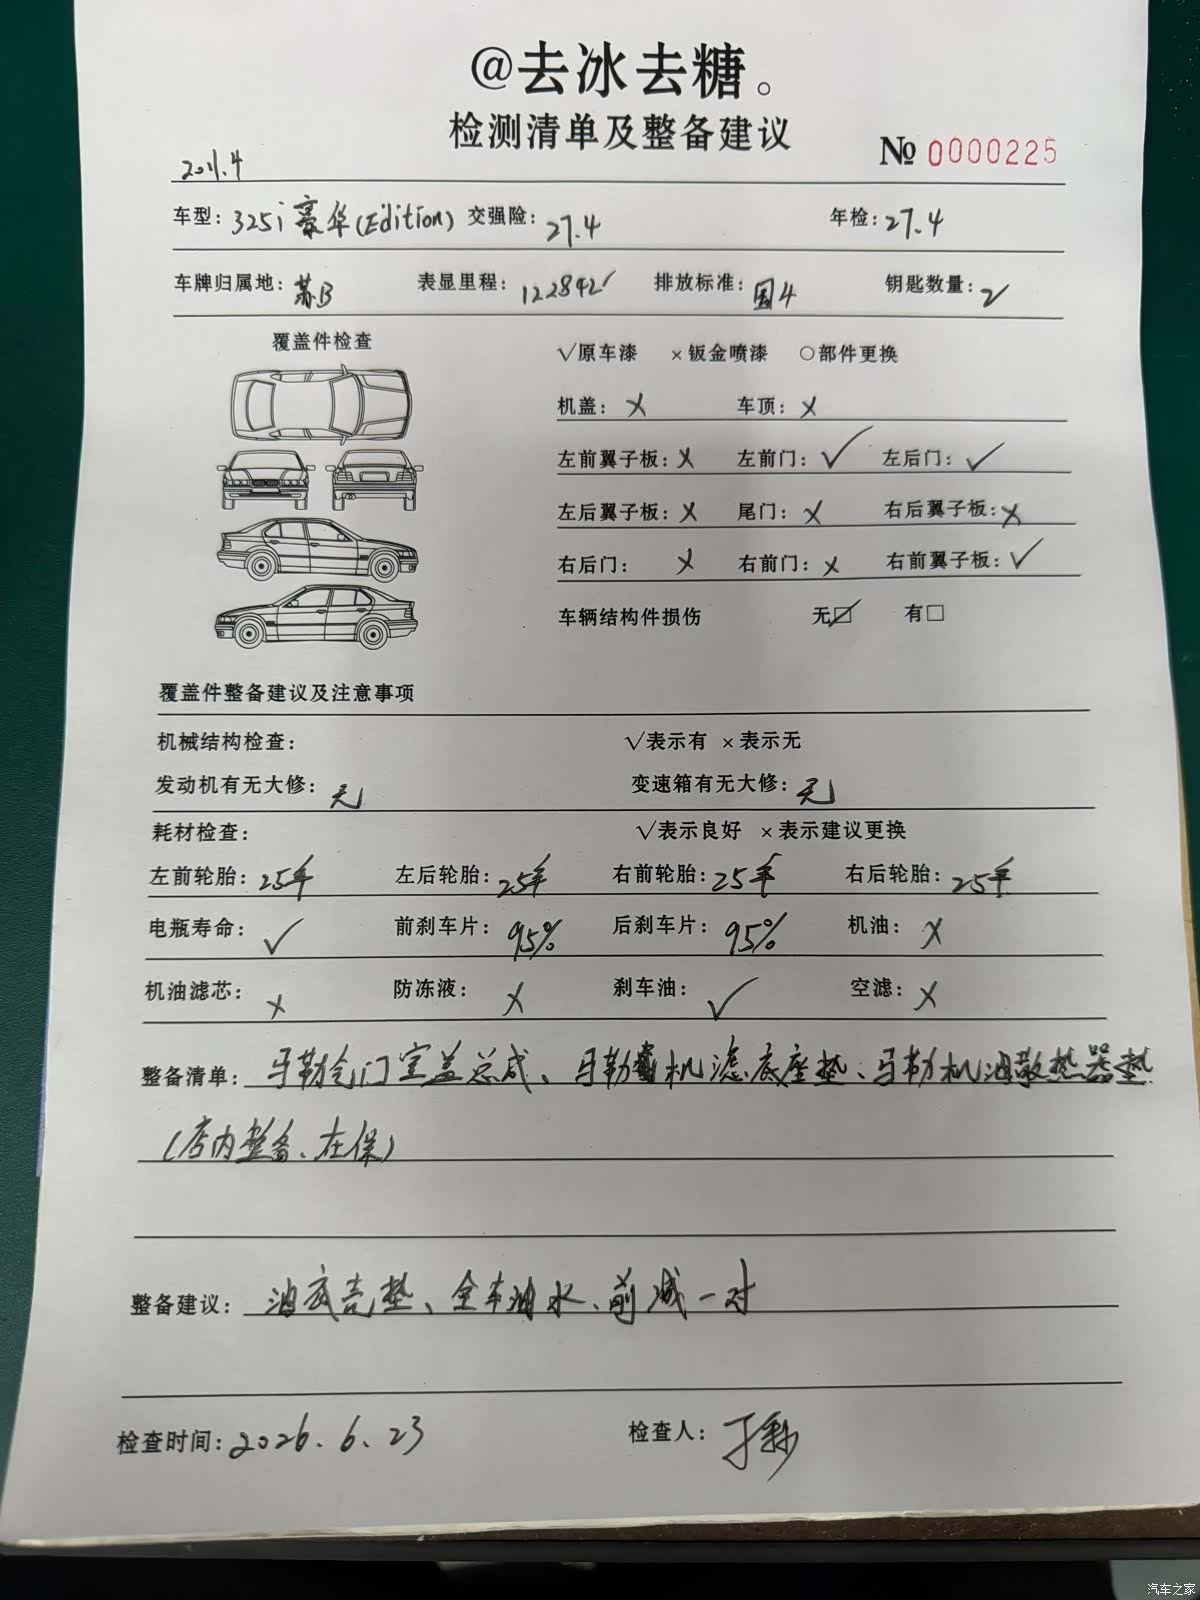 @去冰去糖。
检测清单及整备建议
№ 0000225
2011.4
车型: 325i 豪华(Edition) 交强险: 27.4 年检: 27.4
车牌归属地: 苏B 表显里程: 122842 排放标准: 国4 钥匙数量: 2
覆盖件检查
√原车漆 ×钣金喷漆 ○部件更换
机盖: × 车顶: ×
左前翼子板: × 左前门: √ 左后门: √
左后翼子板: × 尾门: × 右后翼子板: ×
右后门: × 右前门: × 右前翼子板: √
车辆结构件损伤 无☑ 有□
覆盖件整备建议及注意事项
机械结构检查: √表示有 ×表示无
发动机有无大修: 无 变速箱有无大修: 无
耗材检查: √表示良好 ×表示建议更换
左前轮胎: 25年 左后轮胎: 25年 右前轮胎: 25年 右后轮胎: 25年
电瓶寿命: √ 前刹车片: 95% 后刹车片: 95% 机油: ×
机油滤芯: × 防冻液: × 刹车油: √ 空滤: ×
整备清单: 马勒气门室盖总成、马勒机滤底座垫、马勒机油散热器垫
(店内整备、在保)
整备建议: 油底壳垫、全车油水、前减一对
检查时间: 2026.6.23 检查人: 丁
汽车之家